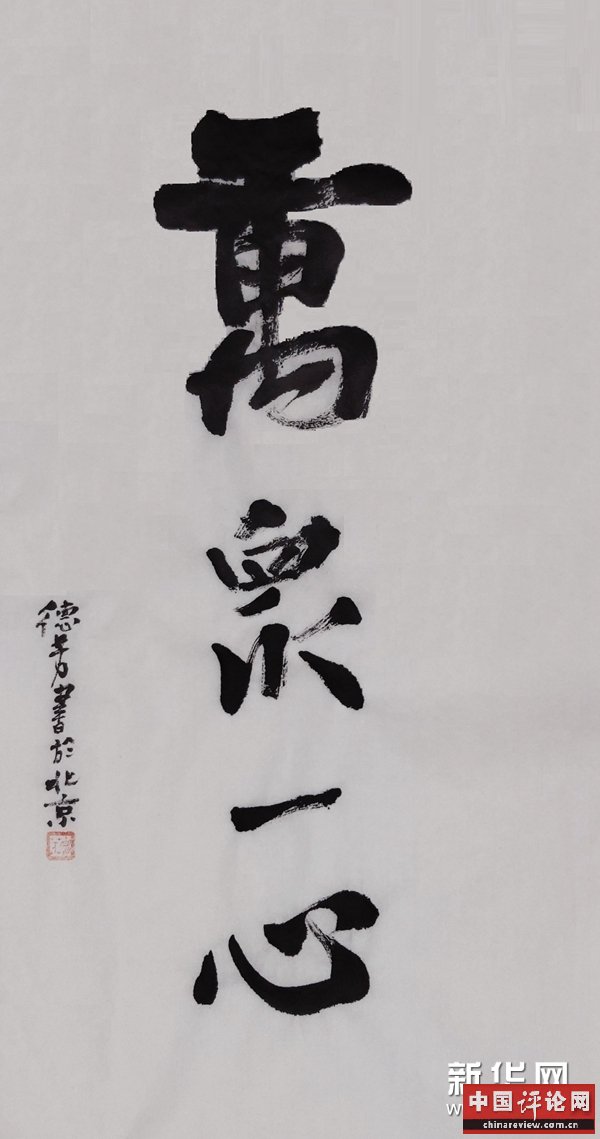 萬衆一心
德芳書於北京
新华网
中国评论网
chinareview.com.cn